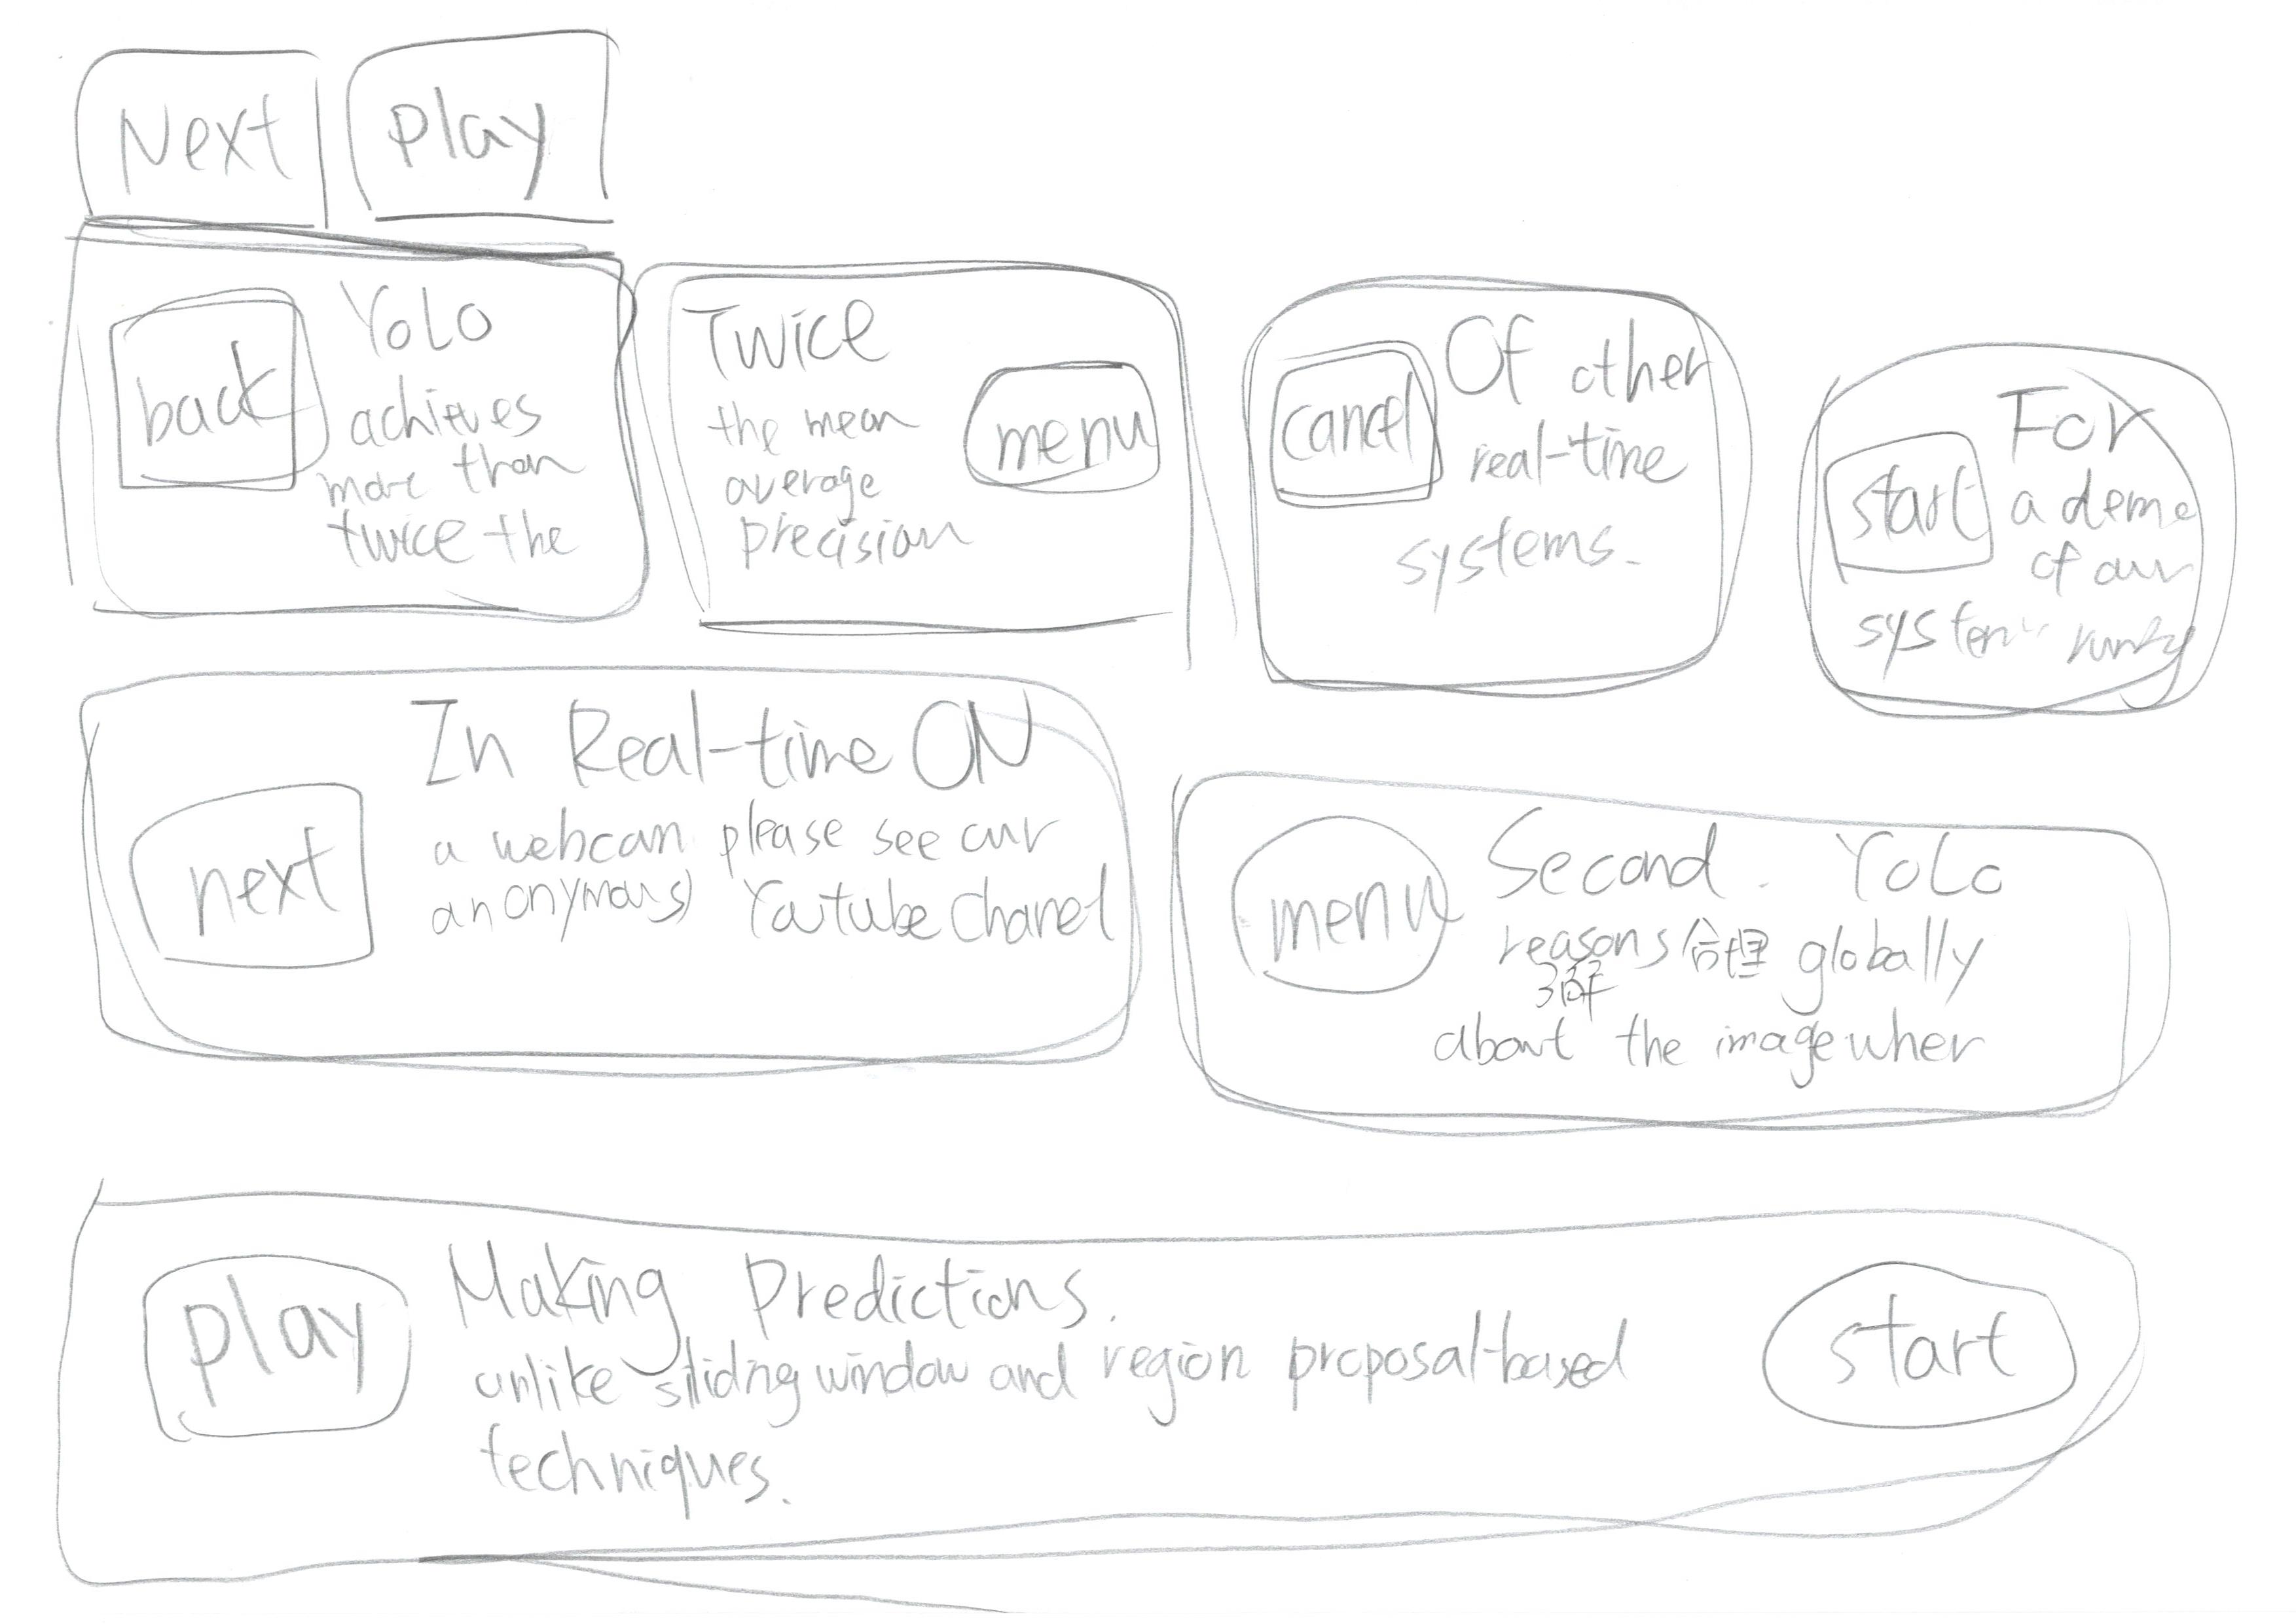 Next
play
back
YoLo
achieves
more than
twice the
Twice
the mean
average
precision
menu
cancel
Of other
real-time
systems.
start
For
a demo
of our
system
In Real-time ON
next
a webcam please see our
anonymous) Youtube Chanel
menu
Second. YoLo
reasons 合理 globally
了解
about the image when
play
Making Predictions.
unlike sliding window and region proposal-based
techniques.
start